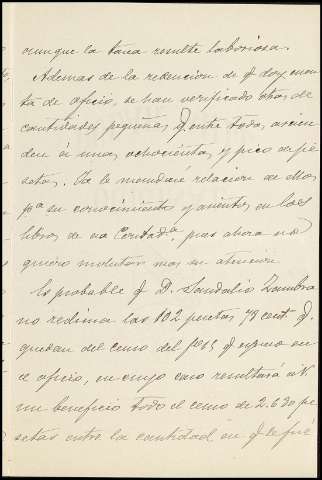 aunque la tarea resulte laboriosa.
Ademas de la redencion de q doy cuen
ta de oficio, se han verificado otras de
cantidades pequeñas q, entre todas, ascien
den á unas ochocientas y pico de pe
setas. Ya le mandaré relacion de ellas
pª su conocimiento y asientos en los
libros de esa pues ahora no
quiero molestar mas su atencion
Es probable q D. Sandalio Zambra
no redima las 102 pesetas 78 cent q.
quedan del censo del q expreso en
el oficio, en cuyo caso resultará á V.
un beneficio todo el censo de 2.630 pe
setas entre la cantidad en q se fué